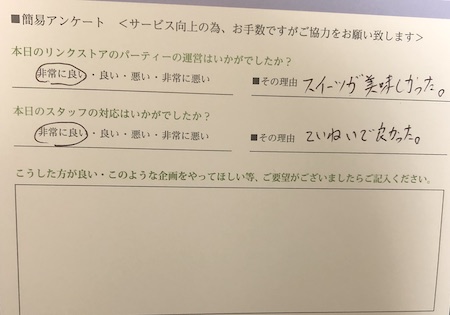 ■簡易アンケート ＜サービス向上の為、お手数ですがご協力をお願い致します＞
本日のリンクストアのパーティーの運営はいかがでしたか？
非常に良い・良い・悪い・非常に悪い ■その理由 スイーツが美味しかった。
本日のスタッフの対応はいかがでしたか？
非常に良い・良い・悪い・非常に悪い ■その理由 ていねいで良かった。
こうした方が良い・このような企画をやってほしい等、ご要望がございましたらご記入ください。